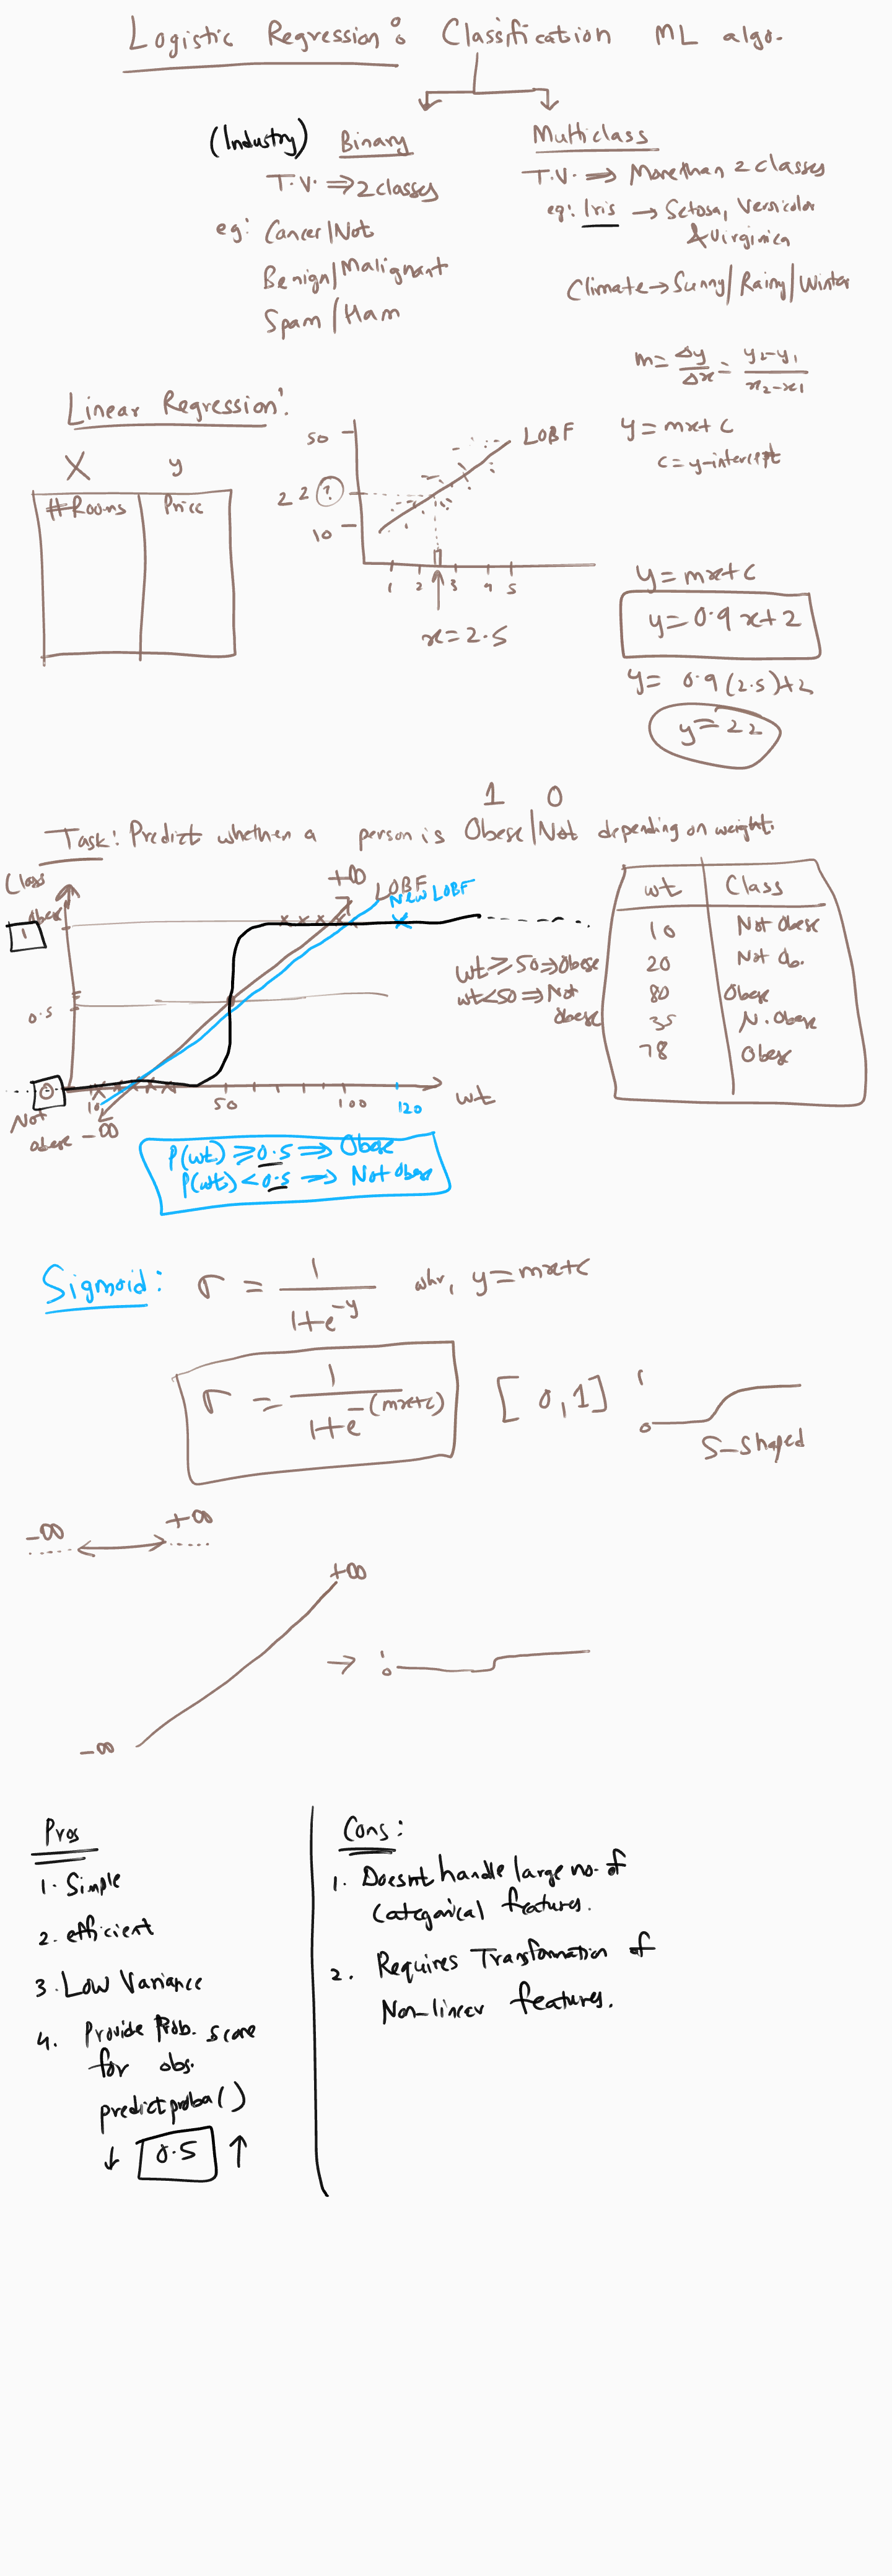 Logistic Regression: Classification ML algo.
(Industry) Binary
T.V. ⇒ 2 classes
eg: Cancer/Not
Benign/Malignant
Spam/Ham
Multiclass
T.V. ⇒ More than 2 classes
eg: Iris → Setosa, Versicolor
& Virginica
Climate → Sunny/Rainy/Winter
m = Δy/Δx = y2-y1/x2-x1
y = mx + c
c = y-intercept
Linear Regression:
X y
#Rooms Price
50
22 ?
10
LOBF
1 2 3 4 5
x = 2.5
y = mx + c
y = 0.9x + 2
y = 0.9(2.5) + 2
y = 22
1 0
Task: Predict whether a person is Obese/Not depending on weight.
Class
Obese
1
0.5
0
Not
obese
-∞
+∞
LOBF
New LOBF
10 50 100 120 wt
wt ≥ 50 ⇒ Obese
wt < 50 ⇒ Not
obese
wt Class
10 Not Obese
20 Not Ob.
80 Obese
35 N. Obese
78 Obese
P(wt) ≥ 0.5 ⇒ Obese
P(wt) < 0.5 → Not obese
Sigmoid: σ = 1/1+e^-y whr, y = mx+c
σ = 1/1+e^-(mx+c) [0,1]
1
0
S-shaped
-∞ +∞
+∞
-∞
→ 1
0
Pros
1. Simple
2. efficient
3. Low Variance
4. Provide Prob. score
for obs.
predictproba()
↓ 0.5 ↑
Cons:
1. Doesnt handle large no. of
Categorical features.
2. Requires Transformation of
Non-linear features.